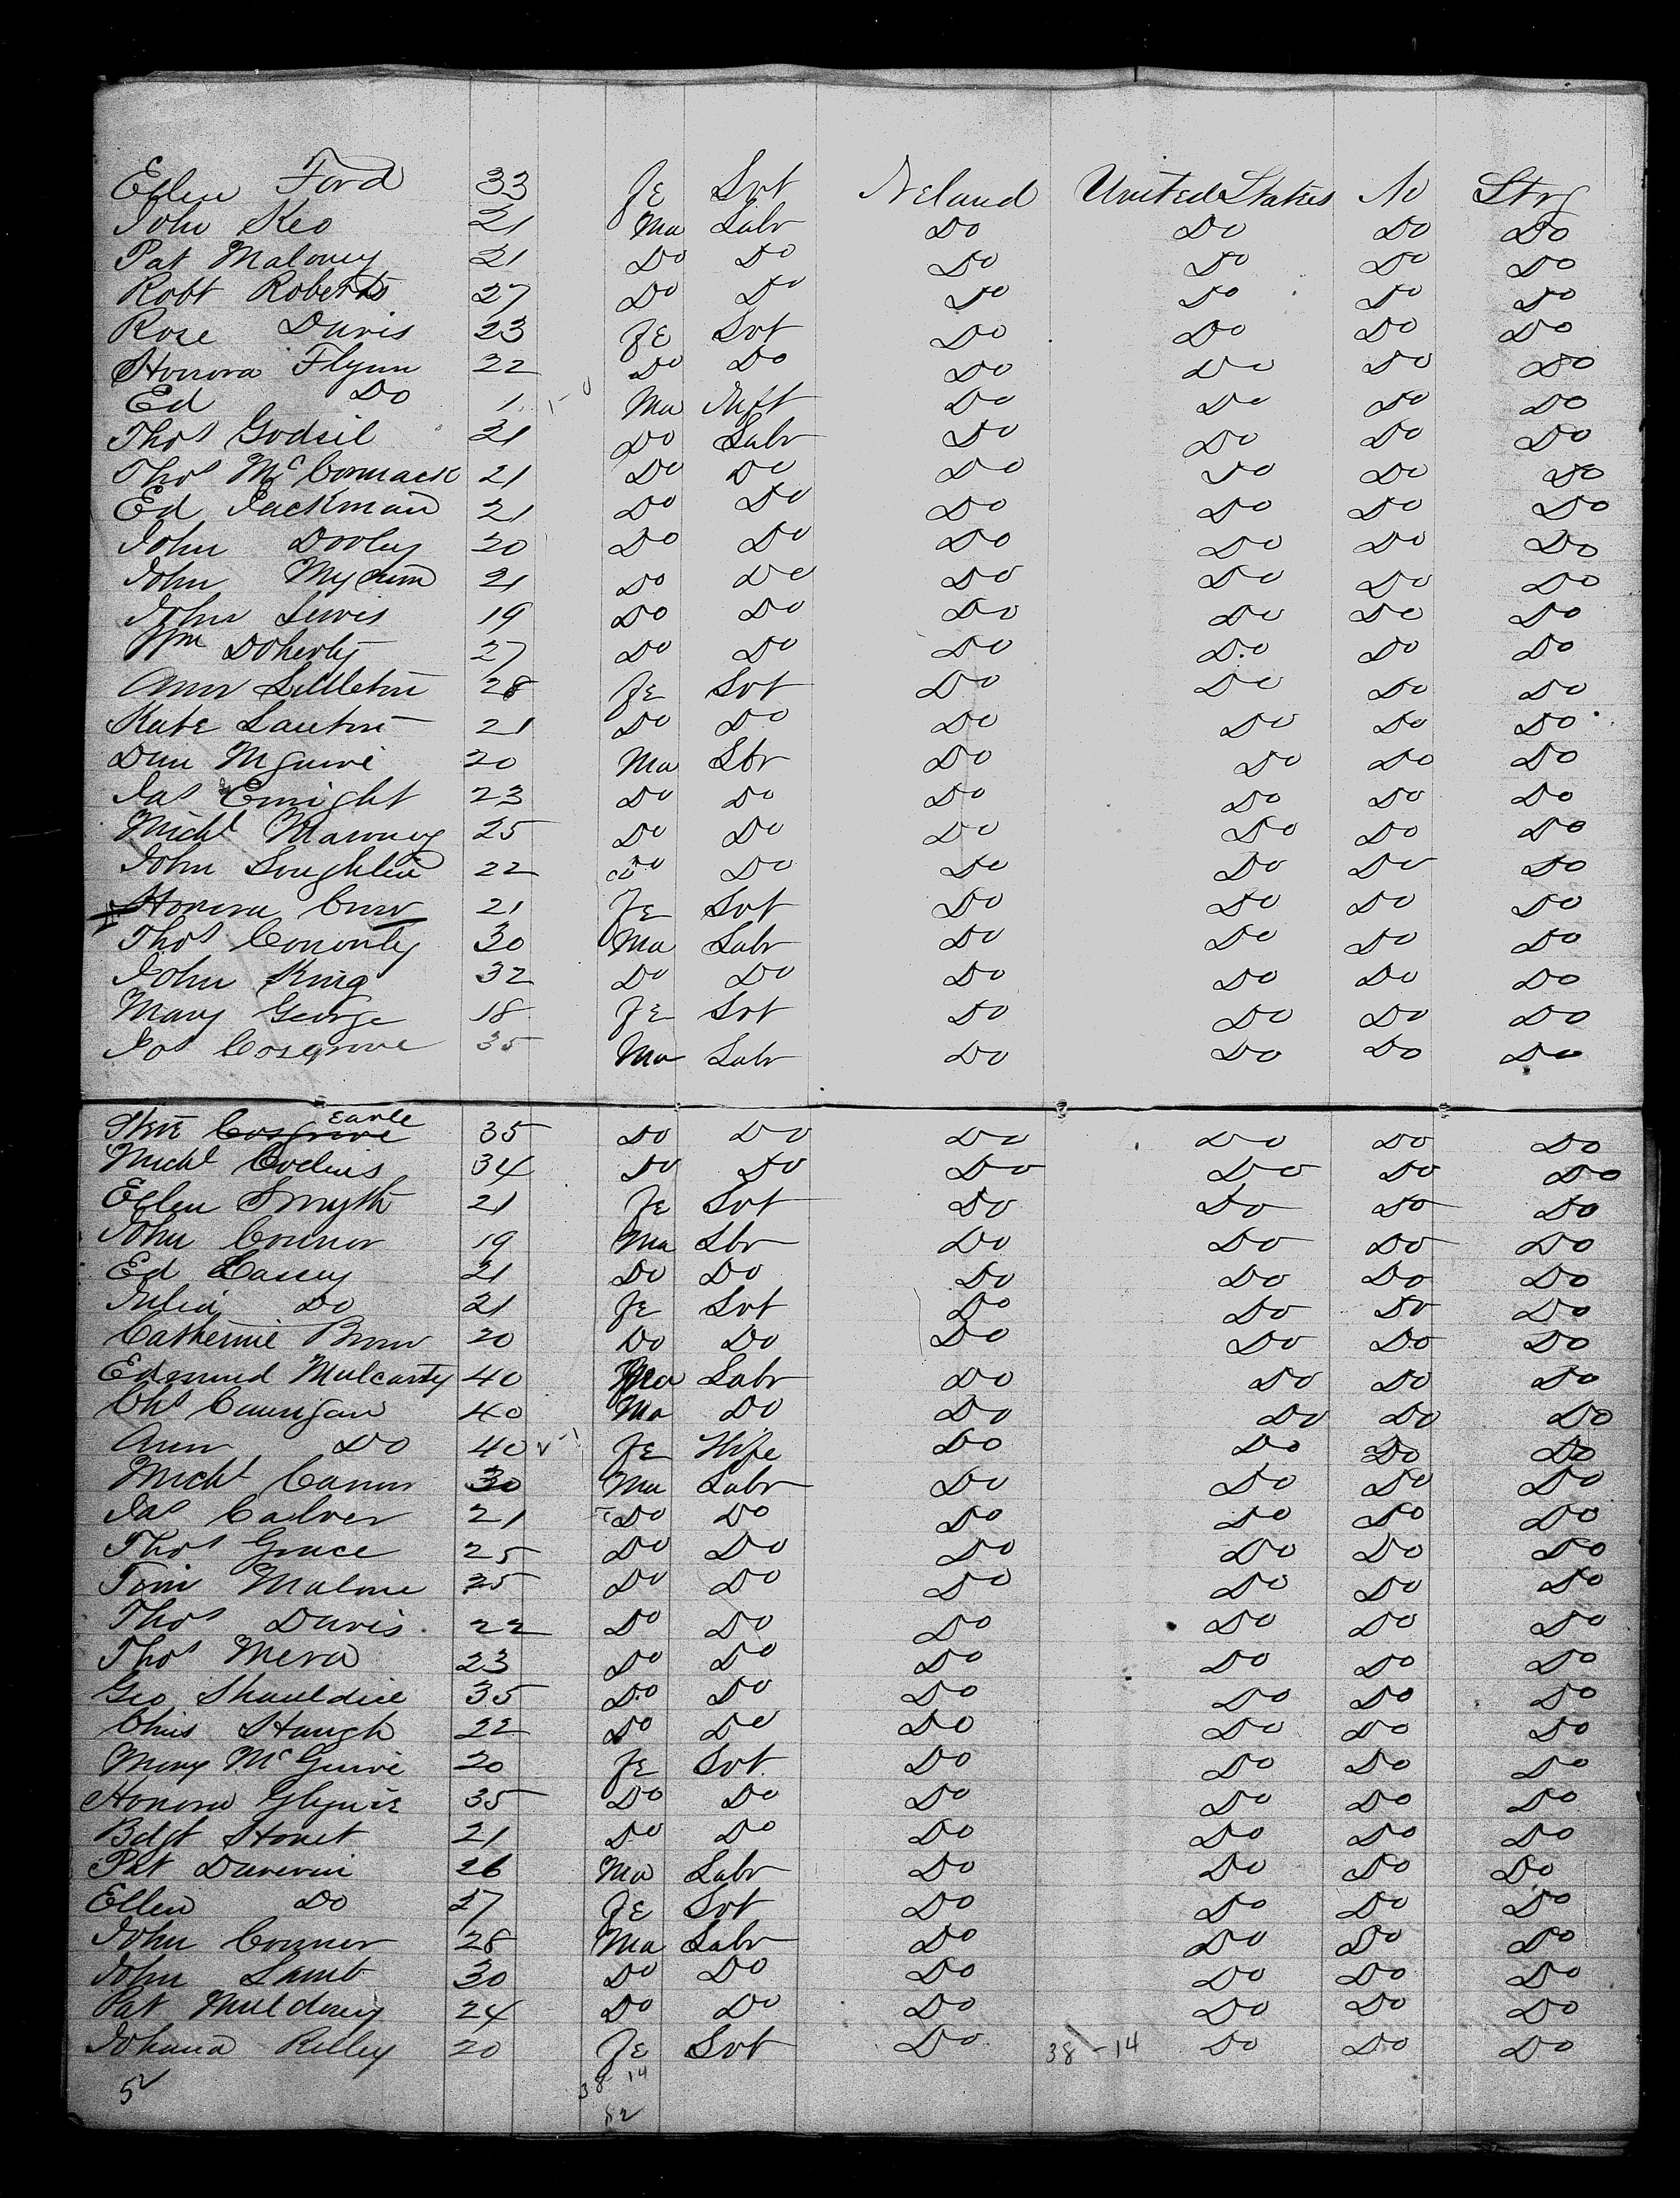 Ellen Ford 33 Fe Svt Ireland United States No Strg
John Keo 21 Ma Labr Do Do Do Do
Pat Maloney 21 Do Do Do Do Do Do
Robt Roberts 27 Do Do Do Do Do Do
Rose Davis 23 Fe Svt Do Do Do Do
Honora Flynn 22 Do Do Do Do Do Do
Ed Do 1 Ma Inft Do Do Do Do
Thos Godsil 21 Do Labr Do Do Do Do
Thos McCormack 21 Do Do Do Do Do Do
Ed Jackman 21 Do Do Do Do Do Do
John Dooley 20 Do Do Do Do Do Do
John 21 Do Do Do Do Do Do
John Lewis 19 Do Do Do Do Do Do
Wm Doherty 27 Do Do Do Do Do Do
Ann Littleton 28 Fe Svt Do Do Do Do
Kate Lawton 21 Do Do Do Do Do Do
Dan McGuire 20 Ma Lbr Do Do Do Do
Jas Enright 23 Do Do Do Do Do Do
Michl Maroney 25 Do Do Do Do Do Do
John Loughlin 22 Do Do Do Do Do Do
Honora Crow 21 Fe Svt Do Do Do Do
Thos Cononly 30 Ma Labr Do Do Do Do
John King 32 Do Do Do Do Do Do
Mary George 18 Fe Svt Do Do Do Do
Jos Cosgrove 35 Ma Labr Do Do Do Do
Earle
Steve Cosgrove 35 Do Do Do Do Do Do
Michl 34 Do Do Do Do Do Do
Ellen Smyth 21 Fe Svt Do Do Do Do
John Connor 19 Ma Lbr Do Do Do Do
Ed Casey 21 Do Do Do Do Do Do
Julia Do 21 Fe Svt Do Do Do Do
Catherine Brow 20 Do Do Do Do Do Do
Edmund Mulcarty 40 Ma Labr Do Do Do Do
Chs Caurigan 40 Ma Do Do Do Do Do
Ann Do 40 Fe Wife Do Do Do Do
Michl Canon 30 Ma Labr Do Do Do Do
Jas Calver 21 Do Do Do Do Do Do
Thos Grace 25 Do Do Do Do Do Do
Tim Malone 25 Do Do Do Do Do Do
Thos Davis 22 Do Do Do Do Do Do
Thos Mera 23 Do Do Do Do Do Do
Geo Shauldice 35 Do Do Do Do Do Do
Chris Haugh 22 Do Do Do Do Do Do
Mary McGuire 20 Fe Svt Do Do Do Do
Honora Glynn 35 Do Do Do Do Do Do
Bdgt 21 Do Do Do Do Do Do
Pat Daverin 26 Ma Labr Do Do Do Do
Ellen Do 27 Fe Svt Do Do Do Do
John Conner 28 Ma Labr Do Do Do Do
John Lamb 30 Do Do Do Do Do Do
Pat Muldowny 24 Do Do Do Do Do Do
Johana Relley 20 Fe Svt Do 38-14 Do Do Do
52 38 14
82